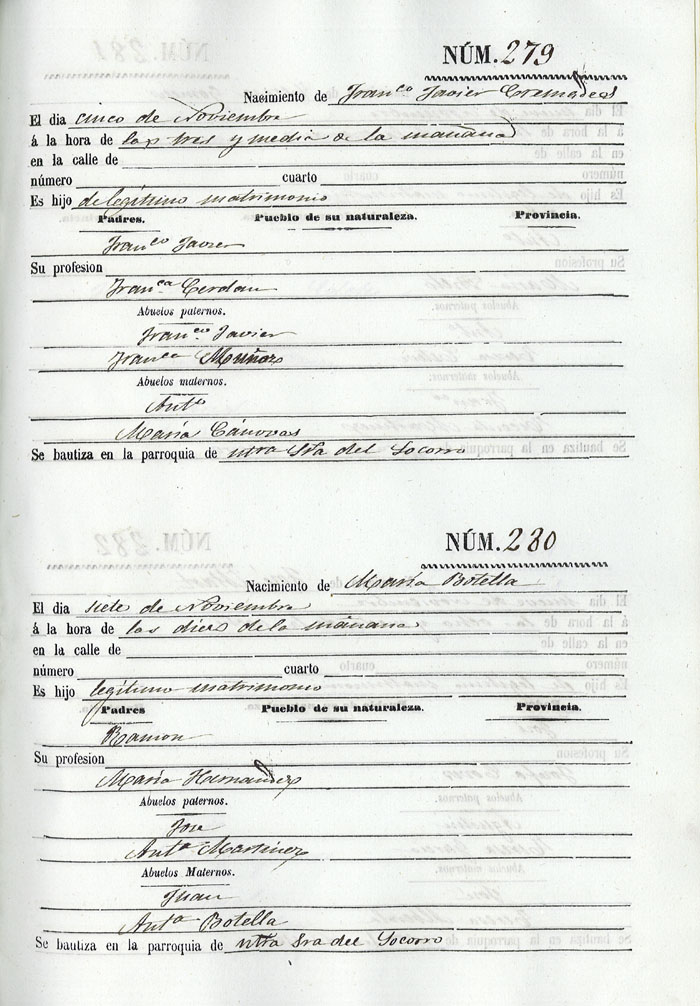 NÚM. 279
Nacimiento de Franco Javier Cremades
El dia cinco de Noviembre
á la hora de las tres y media de la mañana
en la calle de
número cuarto
Es hijo de legítimo matrimonio
Padres. Pueblo de su naturaleza. Provincia.
Franco Javier
Su profesion
Franca Cerdan
Abuelos paternos.
Franco Javier
Franca Muñoz
Abuelos maternos.
Anto
María Cánovas
Se bautiza en la parroquia de ntra Sra del Socorro
NÚM. 280
Nacimiento de María Botella
El dia siete de Noviembre
á la hora de las diez de la mañana
en la calle de
número cuarto
Es hijo legítimo matrimonio
Padres Pueblo de su naturaleza. Provincia.
Ramon
Su profesion
María Hernandez
Abuelos paternos.
Jose
Anta Martinez
Abuelos Maternos.
Juan
Anta Botella
Se bautiza en la parroquia de ntra Sra del Socorro